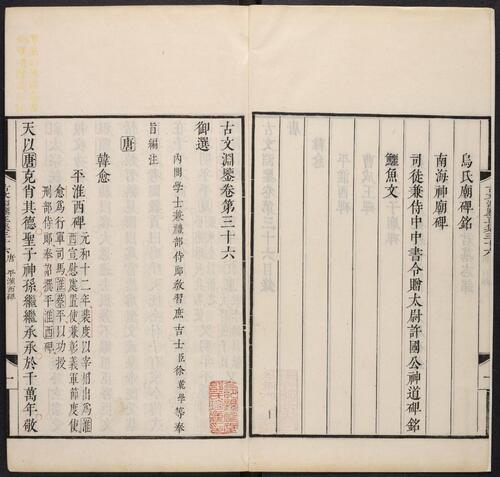 烏氏廟碑銘
南海神廟碑
司徒兼侍中中書令贈太尉許國公神道碑銘
鱷魚文
古文淵鑒卷第三十六
御選
內閣學士兼禮部侍郎教習庶吉士臣徐乾學等奉
旨編注
唐
韓愈
平淮西碑
元和十二年裴度以宰相出爲淮
西宣慰處置使兼彰義軍節度使
愈爲行軍司馬淮蔡平以功授
刑部侍郎奉詔撰平淮西碑
天以唐克肖其德聖子神孫繼繼承承於千萬年敬